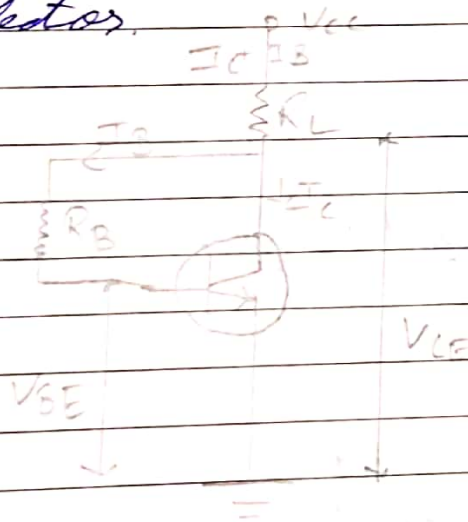 lector.
VCC
IC IB
RL
IB
IC
RB
VCE
VBE